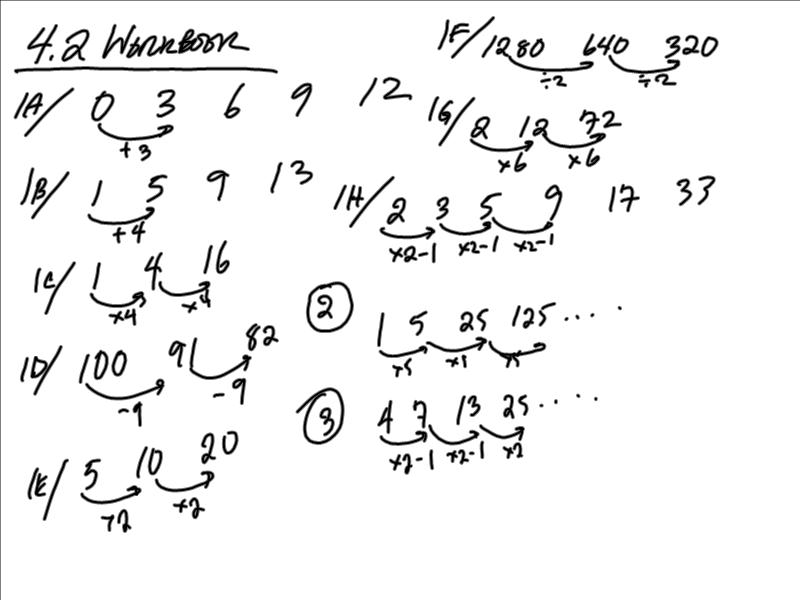 4.2 WORKBOOK
1A/ 0 3 6 9 12
+3
1B/ 1 5 9 13
+4
1C/ 1 4 16
×4 ×4
1D/ 100 91 82
-9 -9
1E/ 5 10 20
×2 ×2
1F/ 1280 640 320
÷2 ÷2
1G/ 2 12 72
×6 ×6
1H/ 2 3 5 9 17 33
×2-1 ×2-1 ×2-1
2
1 5 25 125 ....
×5 ×5 ×5
3
4 7 13 25 ....
×2-1 ×2-1 ×2